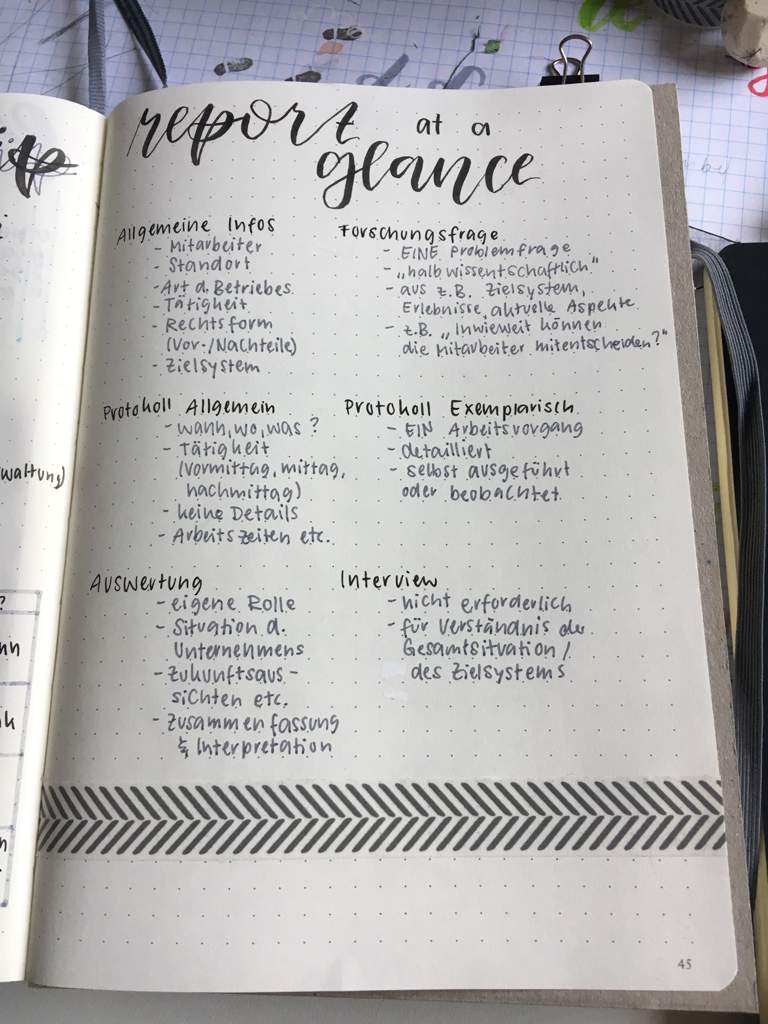 report at a
glance
Allgemeine Infos
- Mitarbeiter
- Standort
- Art d. Betriebes
- Tätigkeit
- Rechtsform
(Vor-/Nachteile)
- Zielsystem
Forschungsfrage
- EINE Problemfrage
- „halbwissentschaftlich"
- aus z.B. Zielsystem,
Erlebnisse, aktuelle Aspekte
- z.B. „Inwieweit können
die Mitarbeiter mitentscheiden?"
Protokoll Allgemein
- wann, wo, was?
- Tätigkeit
(vormittag, mittag,
nachmittag)
- keine Details
- Arbeitszeiten etc.
Protokoll Exemplarisch
- EIN Arbeitsvorgang
- detailliert
- selbst ausgeführt
oder beobachtet
Auswertung
- eigene Rolle
- Situation d.
Unternehmens
- Zukunftsaus-
sichten etc.
- Zusammenfassung
& Interpretation
Interview
- nicht erforderlich
- für Verständnis der
Gesamtsituation /
des Zielsystems
waltung)
45